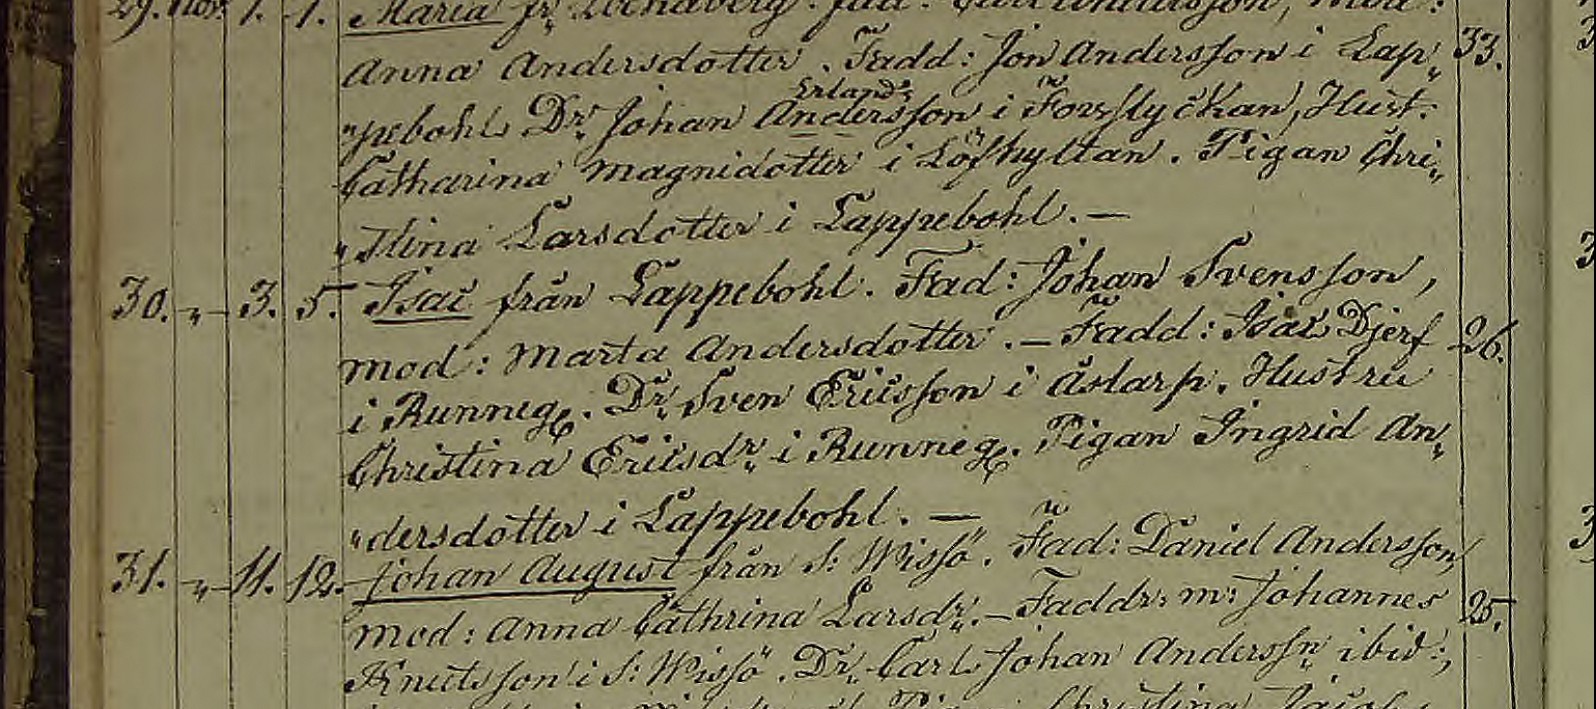 29. Nov. 1. 1. Maria fr. Fad: Carl Andersson, mod:
Anna Andersdotter. Fadd: Jon Andersson i Lap„ 33.
„pebohl. Dr. Johan Andersson Erlands i Forslyckan, Hust.
Catharina Magnidotter i Löfhyltan. Pigan Chri„
„stina Larsdotter i Lappebohl. —
30. „ 3. 5. Isac från Lappebohl. Fad: Johan Svensson,
mod: Marta Andersdotter. — Fadd: Isac Djerf 26.
i Runneg. Dr. Sven Ericsson i Åslarp. Hustru
Christina Ericsdr. i Runneg. Pigan Ingrid An„
„dersdotter i Lappebohl. —
31. „ 11. 12. Johan August från S: Wissö. Fad: Daniel Andersson,
mod: Anna Cathrina Larsdr. — Faddr: m: Johannes 25.
Knutsson i S: Wissö. Dr. Carl Johan Anderssn ibid:,
Christina